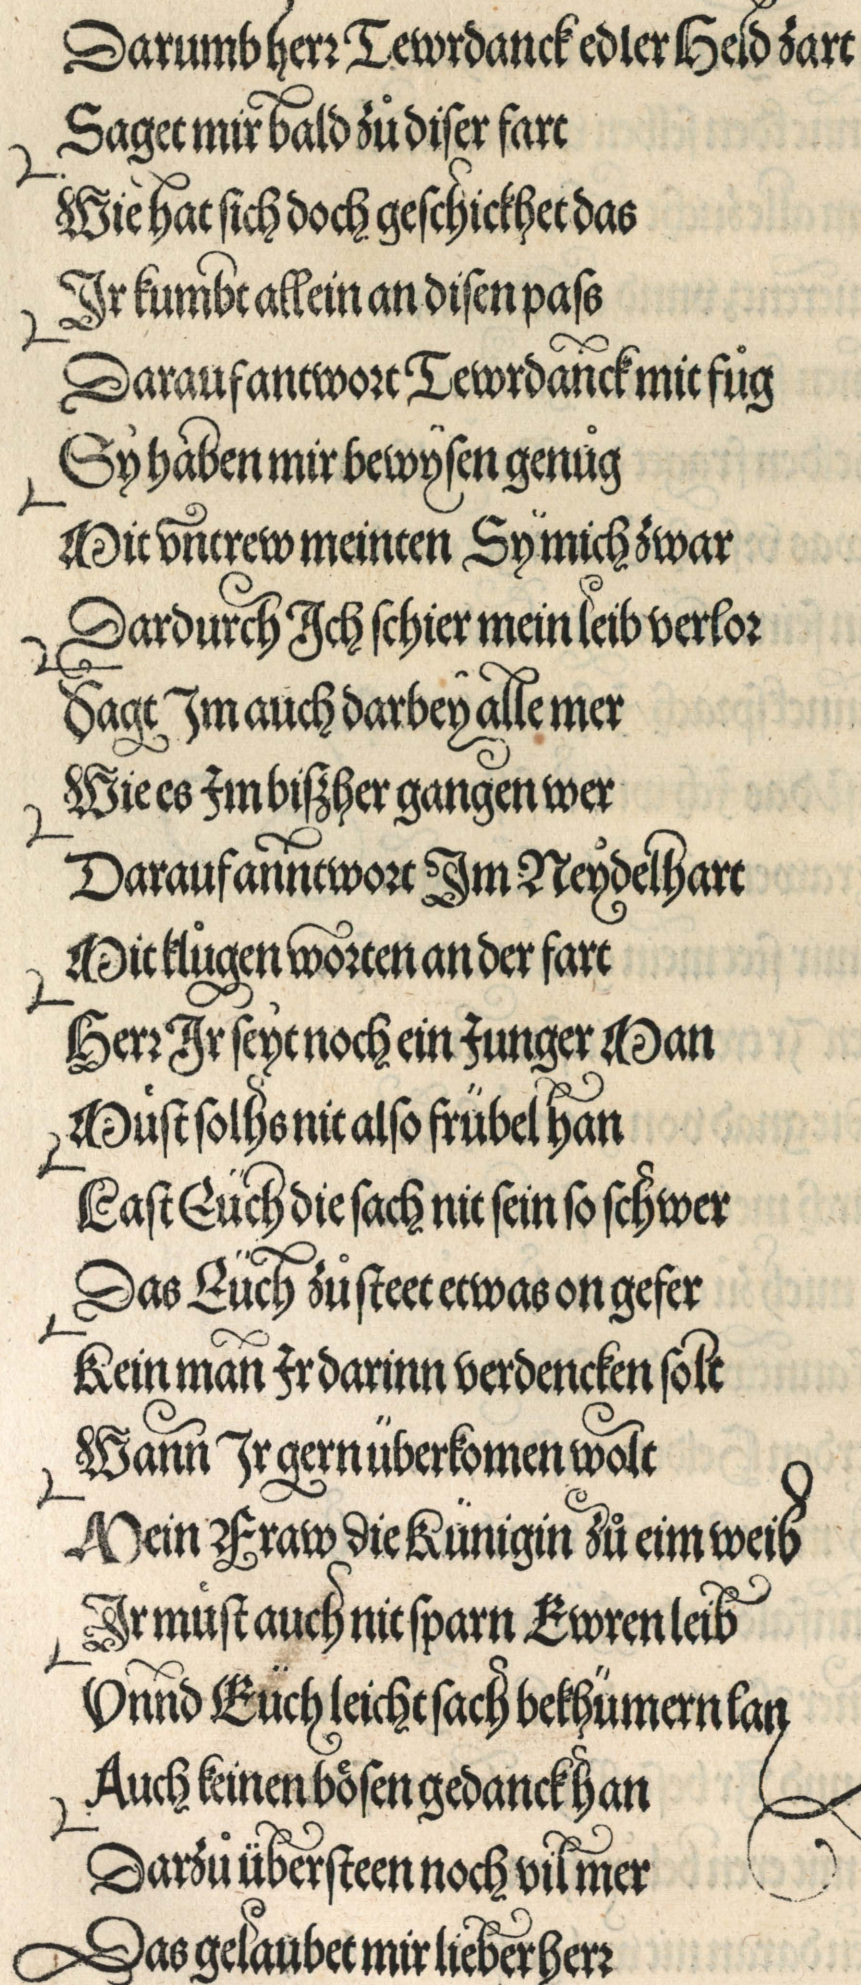 Darumb herr Tewrdanck edler Held zart
Saget mir bald zů diser fart
Wie hat sich doch geschickhet das
Ir kumbt allein an disen pass
Darauf antwort Tewrdanck mit fůg
Sy haben mir bewysen genůg
Mit vntrew meinten Sy mich zwar
Dardurch Ich schier mein leib verlor
Sagt Im auch darbey alle mer
Wie es Im biszher gangen wer
Darauf anntwort Im Neydelhart
Mit klůgen worten an der fart
Herr Ir seyt noch ein Junger Man
Můst solhs nit also frübel han
Last Eüch die sach nit sein so schwer
Das Eüch zů steet etwas on gefer
Kein man Ir darinn verdencken solt
Wann Ir gern überkomen wolt
Mein Fraw die Künigin zů eim weib
Ir můst auch nit sparn Ewren leib
Vnnd Eüch leicht sach bekhümern lan
Auch keinen bösen gedanck han
Darzů übersteen noch vil mer
Das gelaubet mir lieber herr